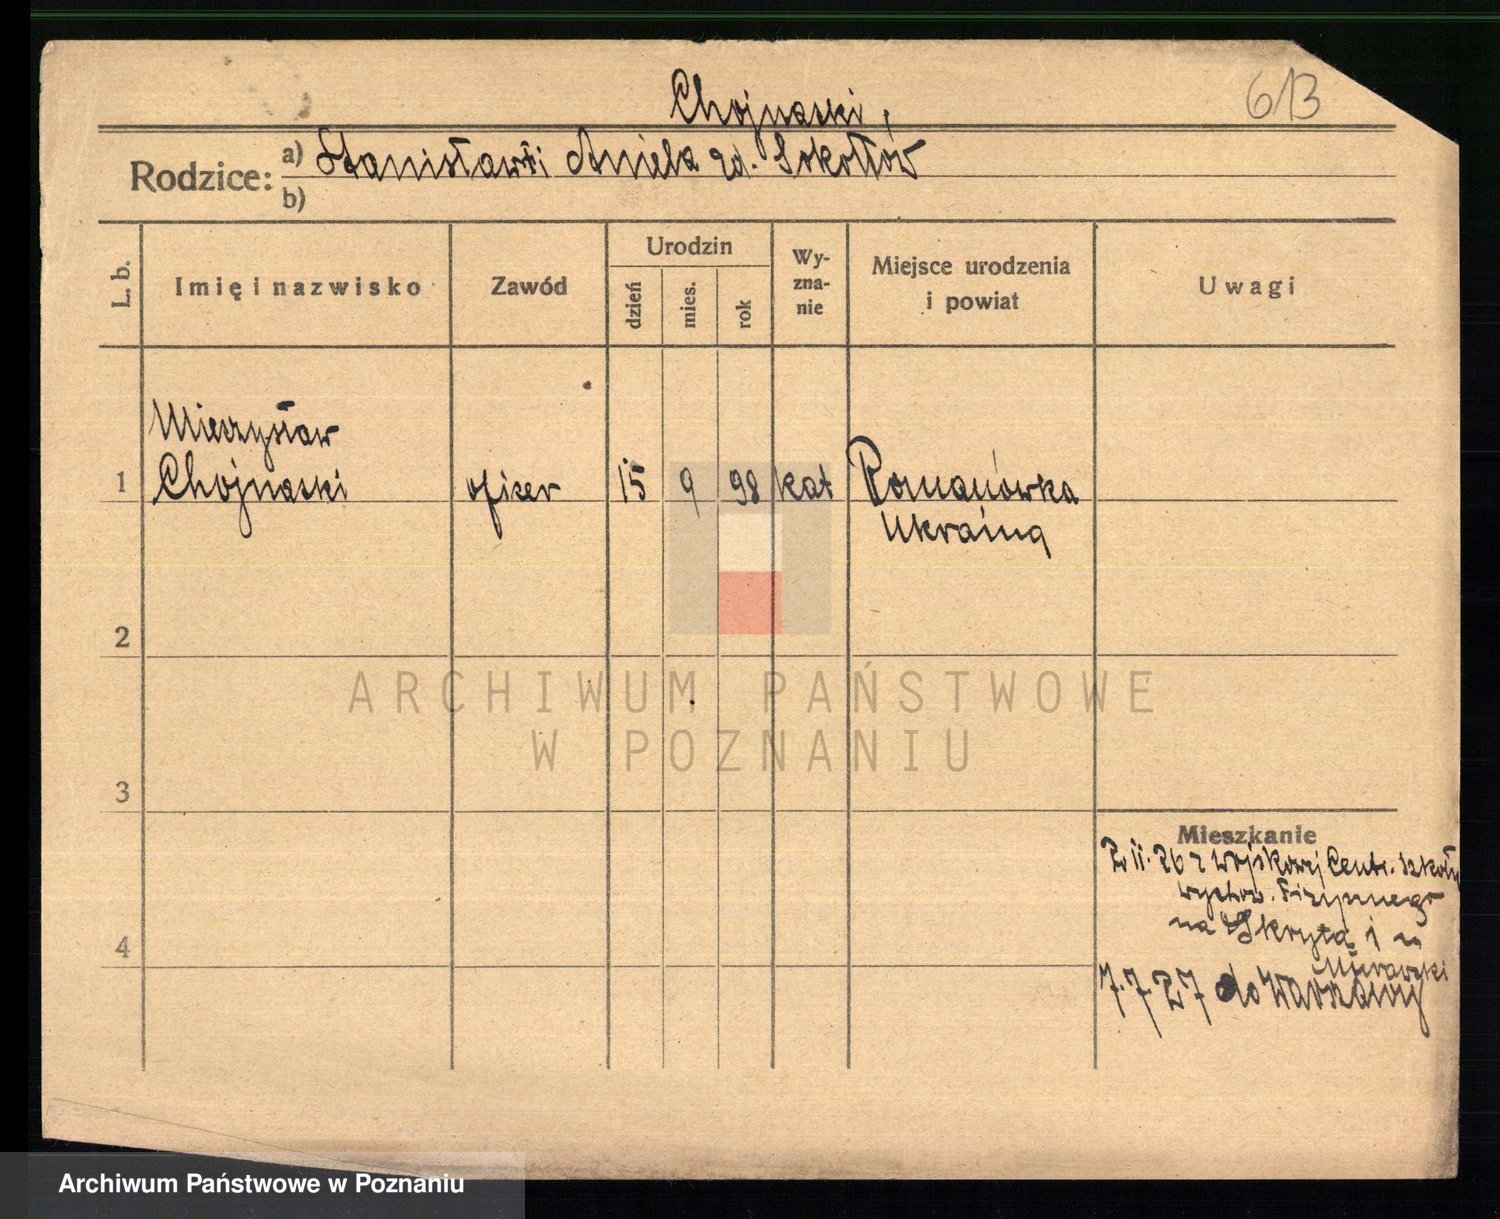 613
Chojnacki,
Rodzice: a) Stanisław i Aniela zd. Sokołów
b)
L. b. Imię i nazwisko Zawód Urodzin dzień mies. rok Wyznanie Miejsce urodzenia i powiat Uwagi
Mieczysław
1 Chojnacki oficer 15 9 98 kat Romanówka
Ukraina
2
ARCHIWUM PAŃSTWOWE
W POZNANIU
3
Mieszkanie
26 z Wojskowej Centr. Szkoły
wychow. Fizycznego
na Skrytą 1
Murawski
4
7.7 27 do Warszawy
Archiwum Państwowe w Poznaniu